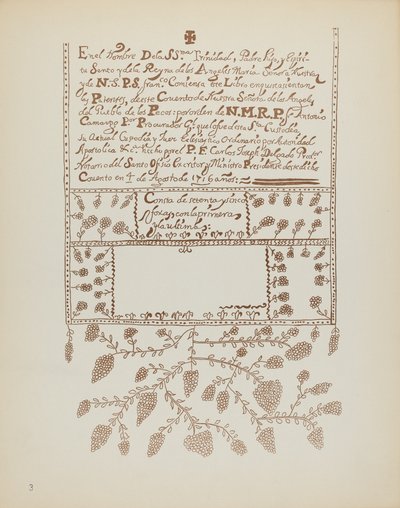 En el Nombre De la SSma Trinidad, Padre Hijo, y Espiri-
tu Santo y de la Reyna de los Angeles Maria Señora Nuestra
y de N. S. P. S. Franco. Comiensa este Libro en que se asientan
las Patentes, de este Covento de Nuestra Señora de los Angeles
del Pueblo de los Pecos por orden de N. M. R. P. Fr. Antonio
Camargo Por Procurador Gl que fue de esta Sta Custodia
su Actual Custodio y Juez Eclesiastico Ordinario por Autoridad
Apostolica &a fue hecho por el P. F. Carlos Joseph Delgado Predor
Notario del Santo Ofisio Escritor y Ministro Presidente de este dicho
Covento en 4 de Agosto de 1716 años
Consta de setenta y sinco
fojas con la primera
y la ultima;
3